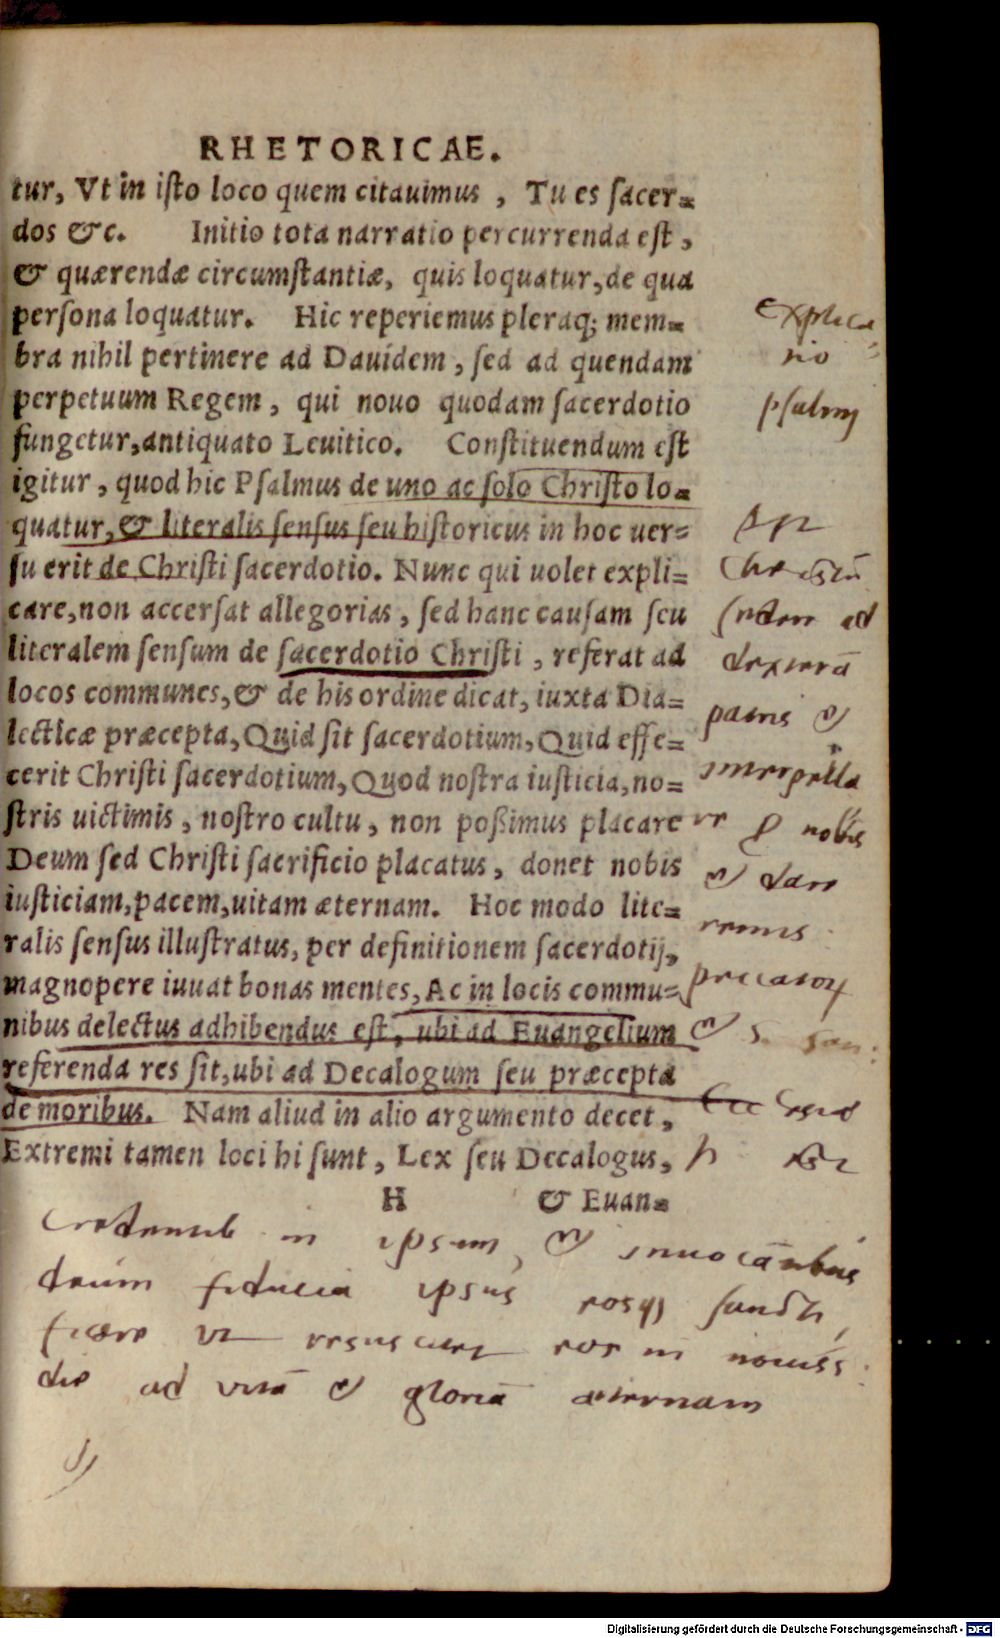 RHETORICAE.
tur, Vt in iſto loco quem citauimus , Tu es ſacer=
dos &c. Initio tota narratio percurrenda eſt ,
& quærendæ circumſtantiæ, quis loquatur, de qua
perſona loquatur. Hic reperiemus pleraq; mem=
bra nihil pertinere ad Dauidem , ſed ad quendam
perpetuum Regem , qui nouo quodam ſacerdotio
fungetur, antiquato Leuitico. Conſtituendum eſt
igitur , quod hic Pſalmus de uno ac ſolo Chriſto lo=
quatur, & literalis ſenſus ſeu hiſtoricus in hoc uer=
ſu erit de Chriſti ſacerdotio. Nunc qui uolet expli=
care, non accerſat allegorias , ſed hanc cauſam ſeu
literalem ſenſum de ſacerdotio Chriſti , referat ad
locos communes, & de his ordine dicat, iuxta Dia=
lecticæ præcepta, Quid ſit ſacerdotium, Quid effe=
cerit Chriſti ſacerdotium, Quod noſtra iuſticia, no=
ſtris uictimis , noſtro cultu , non poßimus placare
Deum ſed Chriſti ſacrificio placatus , donet nobis
iuſticiam, pacem, uitam æternam. Hoc modo lite=
ralis ſenſus illuſtratus, per definitionem ſacerdotij,
magnopere iuuat bonas mentes, Ac in locis commu=
nibus delectus adhibendus eſt, ubi ad Euangelium
referenda res ſit, ubi ad Decalogum ſeu præcepta
de moribus. Nam aliud in alio argumento decet ,
Extremi tamen loci hi ſunt , Lex ſeu Decalogus,
H & Euan=
Explica
tio
pſalmj
Chriſtū
ad
dexterā
patris &
interpella
nobis
&
&
in ipsum, & inuocantibus
fiducia
in
ad vitā & gloriā æternam
Digitalisierung gefördert durch die Deutsche Forschungsgemeinschaft - DFG